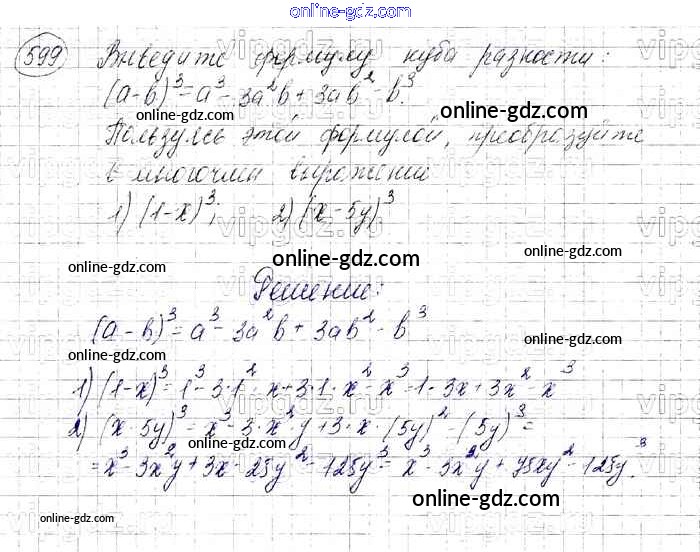 online-gdz.com
599 Выведите формулу куба разности:
(a-b)³=a³-3a²b+3ab²-b³.
online-gdz.com
Пользуясь этой формулой, преобразуйте
в многочлен выражение
online-gdz.com
1) (1-x)³; 2) (x-5y)³
online-gdz.com
online-gdz.com
Решение:
online-gdz.com
(a-b)³=a³-3a²b+3ab²-b³
online-gdz.com
1) (1-x)³=1³-3·1²·x+3·1·x²-x³=1-3x+3x²-x³
2) (x-5y)³=x³-3·x²y+3·x·(5y)²-(5y)³=
online-gdz.com
=x³-3x²y+3x·25y²-125y³=x³-3x²y+75xy²-125y³.
online-gdz.com
online-gdz.com
online-gdz.com
vipgdz.ru